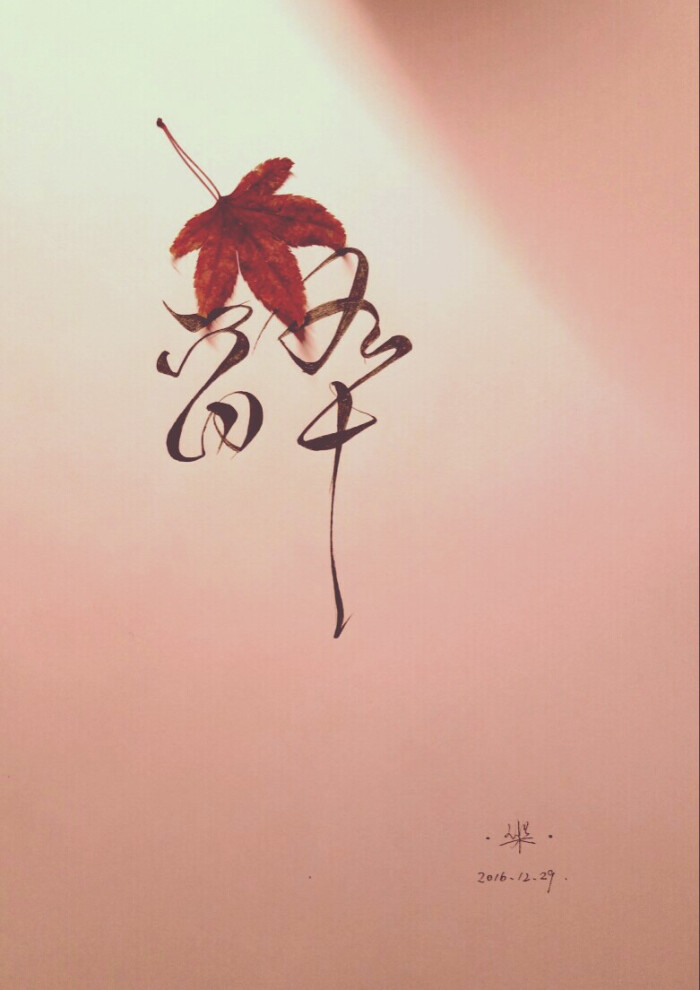 醉
2016.12.29.